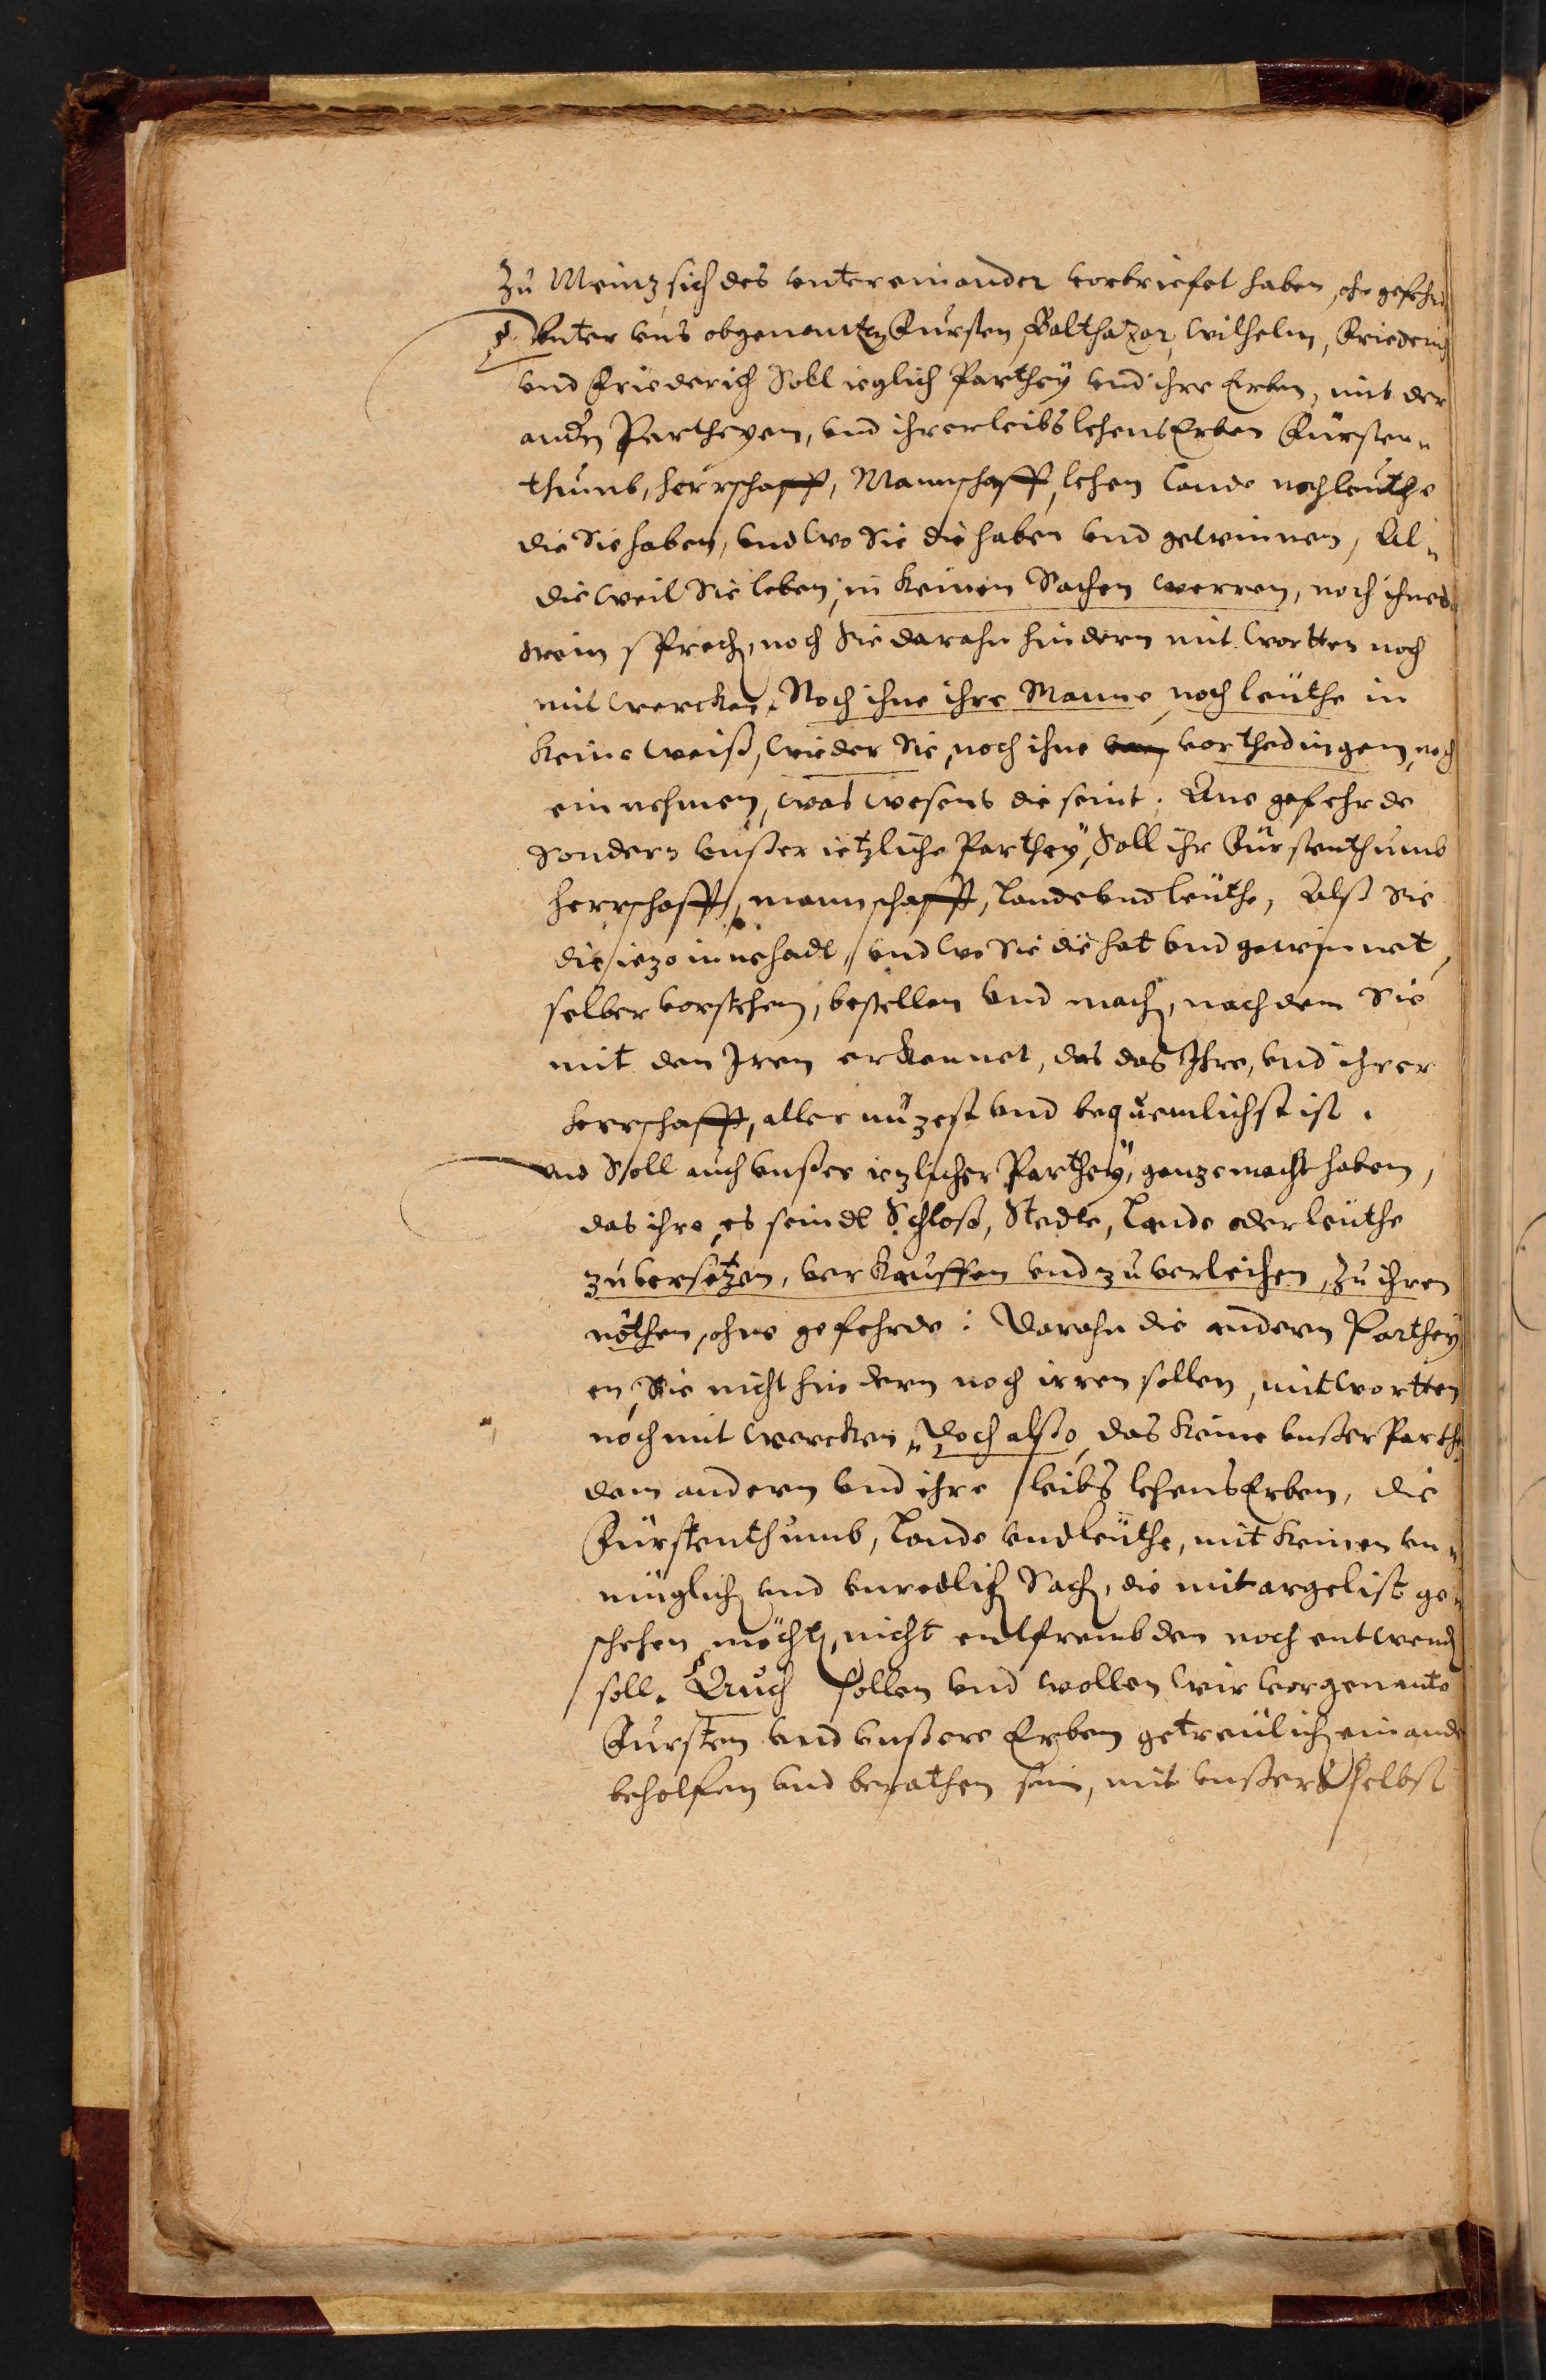 Zu Meinz sich des untereinander vorbriefet haben, ohn gefehrd
Unter uns obgenanten Fursten, Balthazar, Wilhelm, Friederich
und Friederich Soll ieglich Parthey und ihre Erben, mit der
andern Partheyen, und ihrer leibs lehens Erben Fürsten„
thumb, herrschafft, Mannschafft, lehen Lande noch leuthe
die Sie haben, und wo Sie die haben und gewinnen, Al„
die weil Sie leben, in keinen Sachen werren, noch ihnen
drein sprechen, noch Sie darahn hindern mit wortten noch
mit wercken, Noch ihne ihre Manne noch leüthe in
keine weiß, wieder Sie, noch ihne vorthedingen, noch
einnehmen, was wesens die seint. Ane gefehrde
Sondern unßer ietzliche Parthey, Soll ihr Fürstenthumb
herrschafft, mannschafft, Lande und leüthe, Alß Sie
die iezo inne hadt, und wo Sie die hat und gewinnet,
selber vorstehen, bestellen und machen, nachdem Sie
mit den Iren erkennet, das das Ihre, und ihrer
herrschafft, aller nuzest und bequemlichst ist.
und Soll auch unßer iezlicher Parthey, ganze macht haben,
das ihre, es seindt Schloß, Stedte, Lande oder leüthe
zu versetzen, verkauffen und zu verleihen, zu ihren
nöthen, ohne gefehrde: Darahn die andern Parthey
en, Sie nicht hindern noch irren sollen, mit wortten
noch mit wercken, doch alßo, das keine unßer Parthe
dem andern und ihre leibs lehens Erben, die
Fürstenthumb, Lande und leüthe, mit keinen un„
müglichen und unredlichen Sachen, die mit argelist ge„
schehen möchten, nicht entfrembden noch entwenden
soll. Auch sollen und wollen wir vorgenante
Fursten und unßere Erben getreulich einander
beholfen und berathen sein, mit unßer selbst